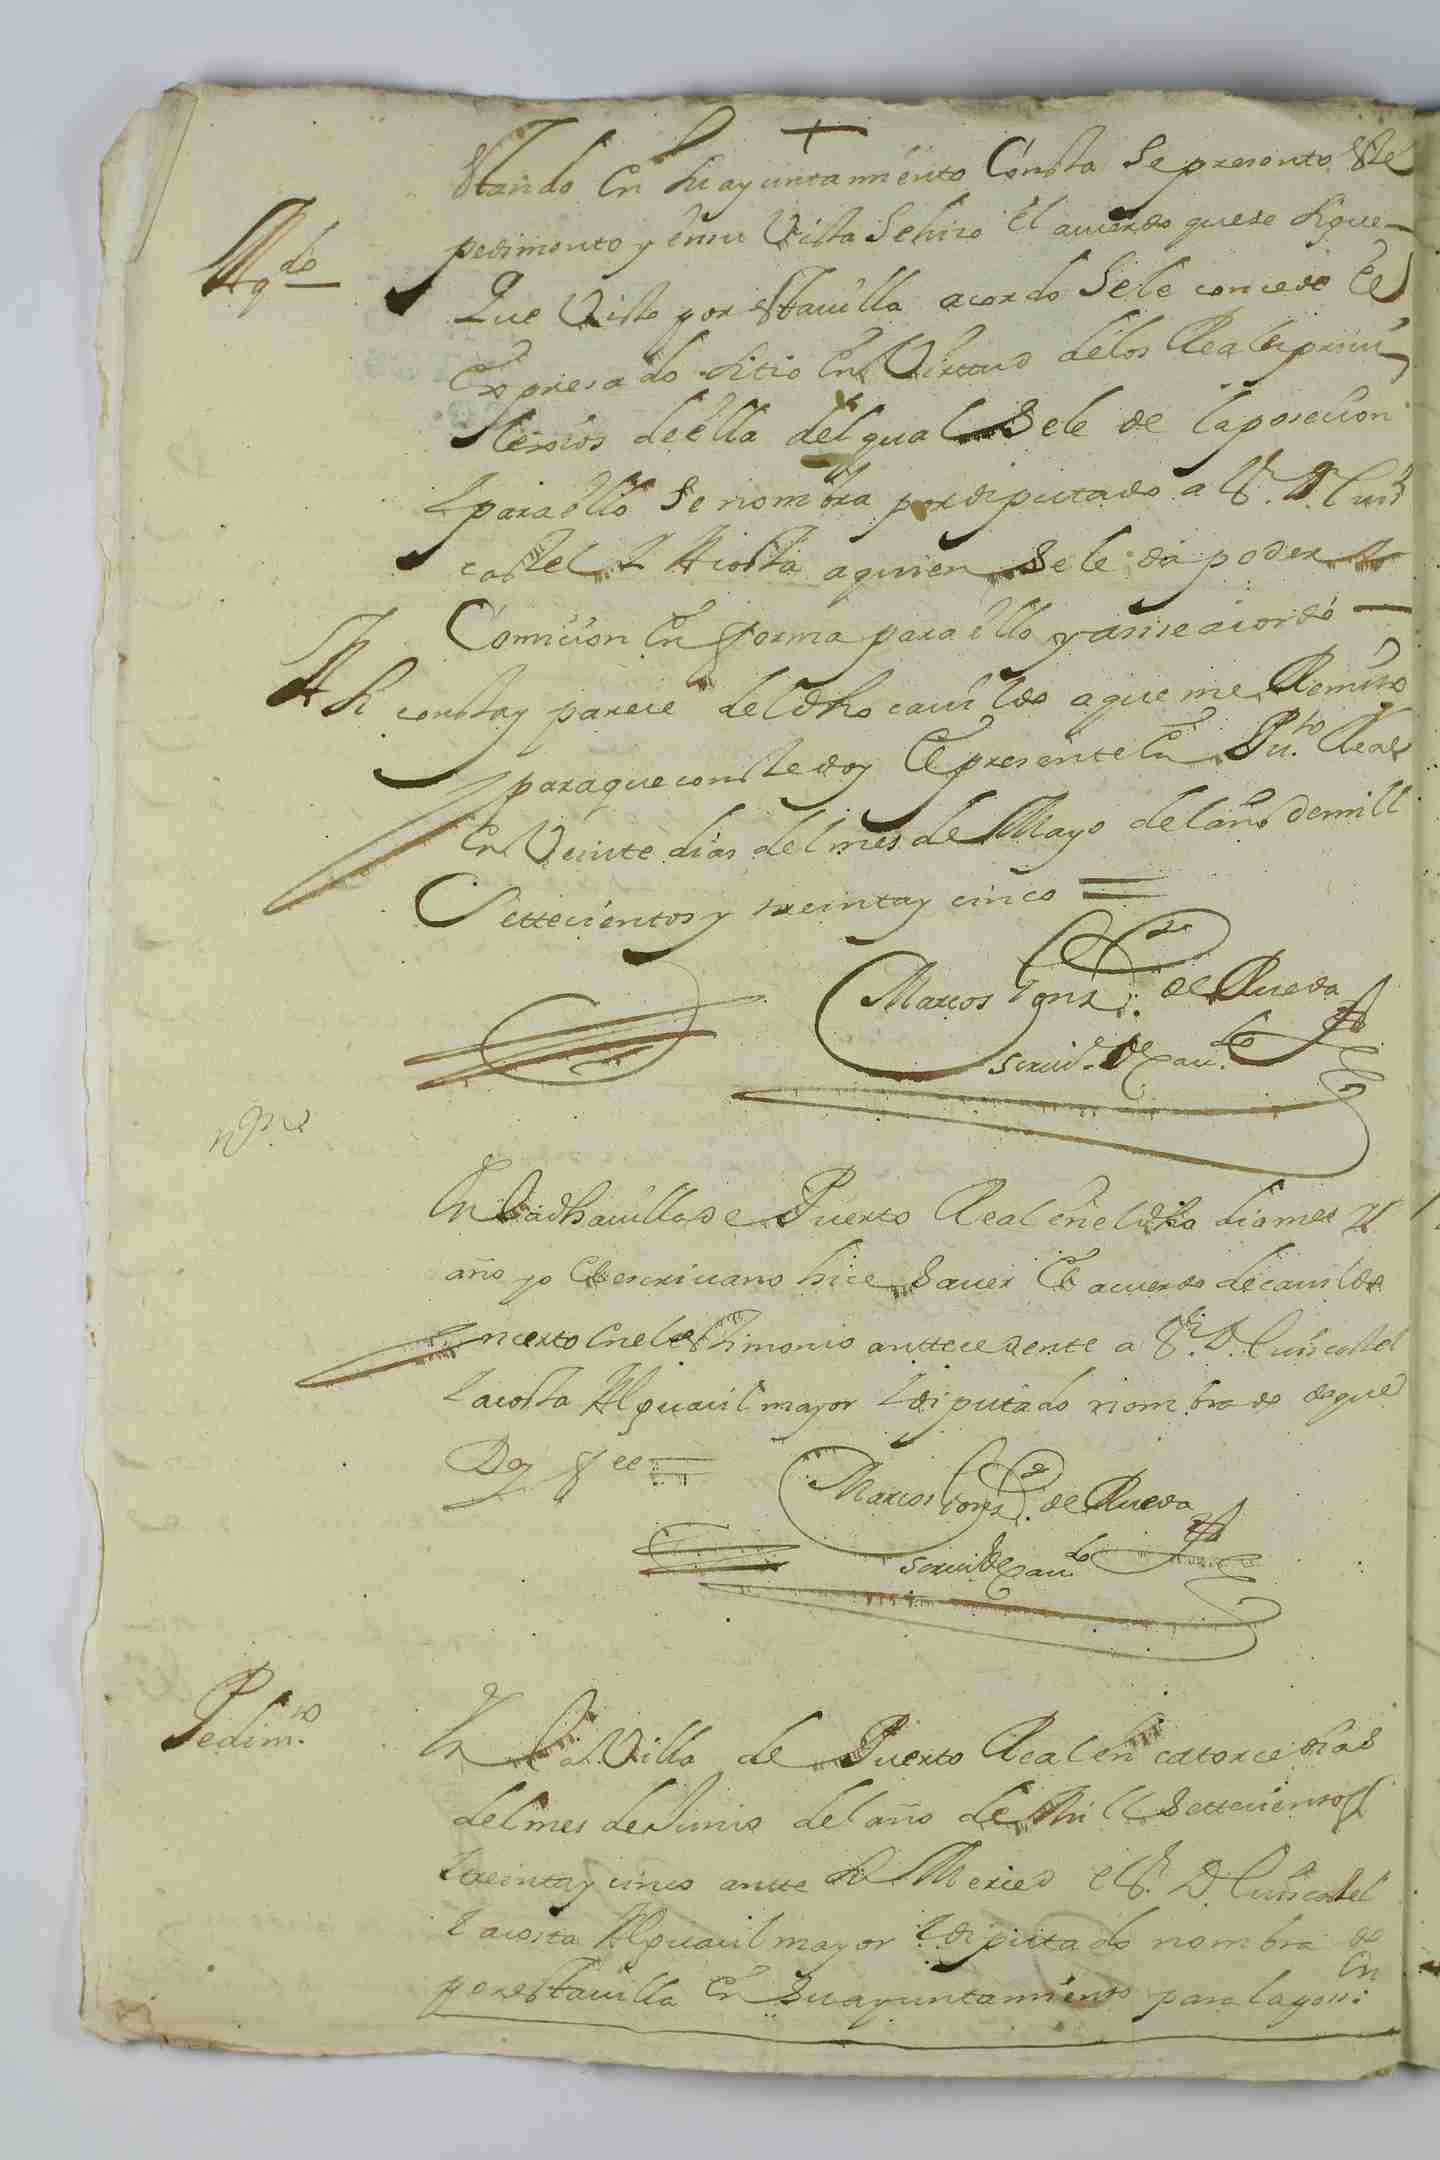 +
Estando En su ayuntamiento Consta Se presento Este
pedimento y en su Vista Se hizo El acuerdo que se sigue
Ac.do
Que Visto por Esta villa acordo Se le concede El
Expresado sitio En Virtud de los Reales privi
lexios de ella del qual Se le de la posecion
I para ello Se nombra por diputado a Sr. D. Luis
castel I Acosta a quien Se le da poder
Comicion En forma para ello y assi se acordo
As si consta y parece del dho cavildo a que me Remito
para que conste doy El presente En Pu.to Real
En Veinte dias del mes de Mayo del año de mill
Settecientos y treinta y cinco =
Marcos Gonz. de Rueda
scriv. de Cav.do
non
En la dha villa de Puerto Real en el dho dia mes y
año yo El escrivano hice Saver El acuerdo de cavildo
ynserto En el testimonio anttecedente a Sr. D. Luis castel
I acosta Alguacil mayor I diputado nombrado de que
Doy fee =
Marcos Gonz. de Rueda
scriv. de Cav.do
Pedim.to
En La Villa de Puerto Real en catorce dias
del mes de Junio del año de Mill Settecientos
treinta y cinco antte Su Merced el Sr. D. Luis castel
I acosta Alguacil mayor I diputado nombrado
por Esta villa En Su ayuntamiento para la poss:
En